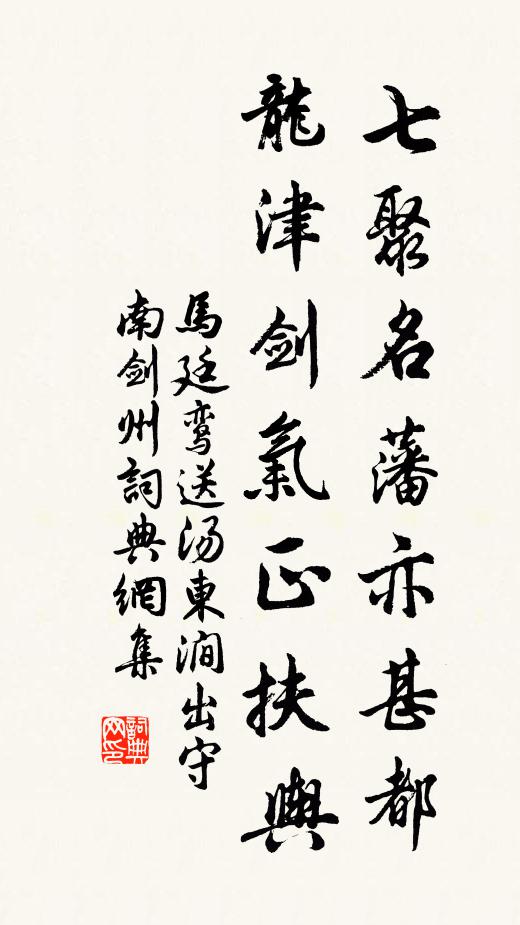 七聚名藩亦甚都
龍津剑氣正扶輿
馬廷鸾送汤東澗出守
南剑州詞典網集
詞典网印